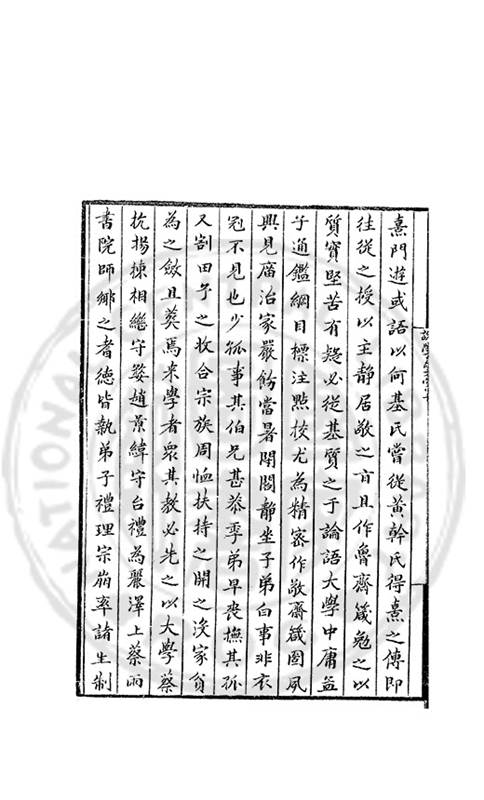 熹門遊或語以何基氏嘗從黃榦氏得熹之傳即
往從之授以主靜居敬之旨且作魯齋箴勉之以
質實堅苦有疑必從基質之于論語大學中庸孟
子通鑑綱目標注點校尤為精密作敬齋箴圖夙
興見廟治家嚴飭當暑閉閤靜坐子弟白事非衣
冠不見也少孤事其伯兄甚恭季弟早喪撫其孤
又割田予之收合宗族周恤扶持之開之沒家貧
為之斂且葬焉來學者眾其教必先之以大學蔡
杭楊棟相繼守婺趙景緯守台禮為麗澤上蔡兩
書院師鄉之耆德皆執弟子禮理宗崩率諸生制